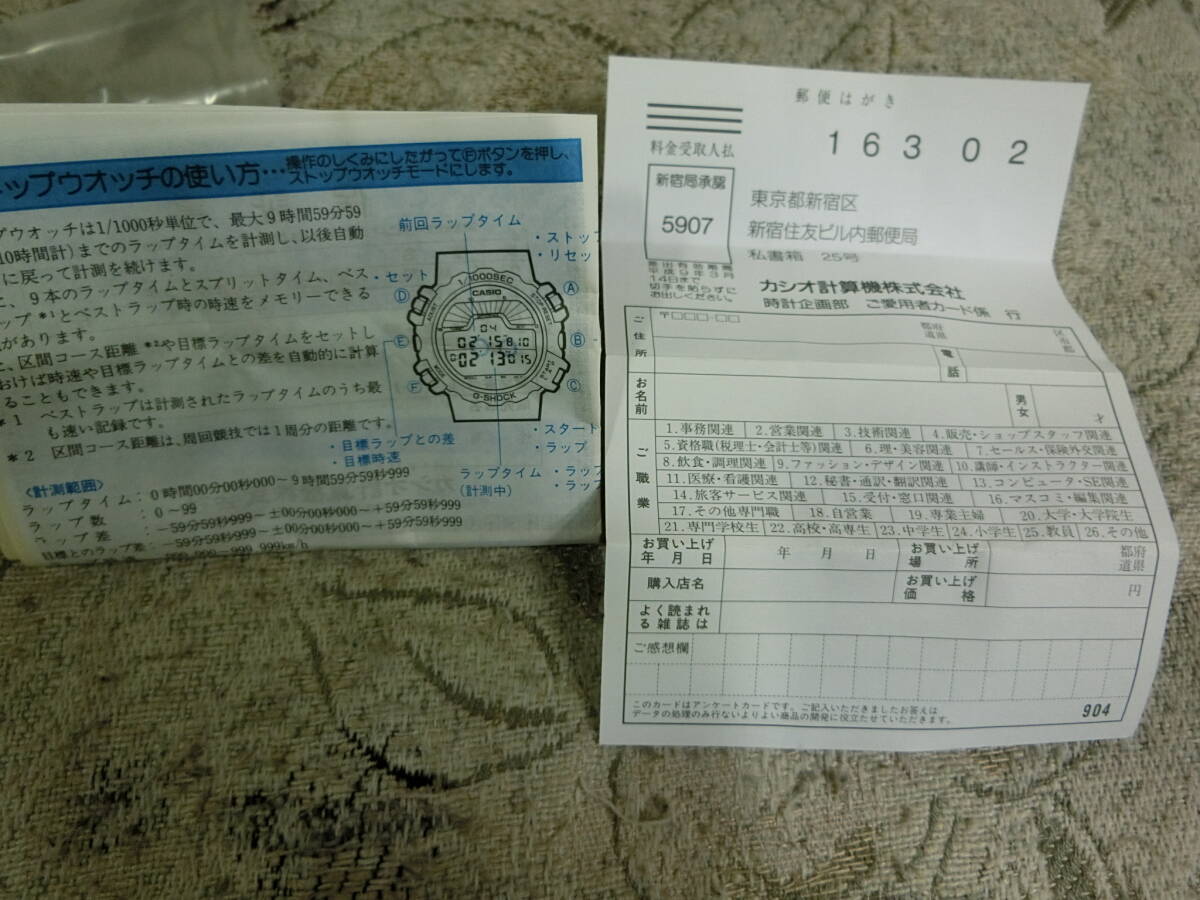 トップウオッチの使い方…操作のしくみにしたがってⒻボタンを押し、
ストップウオッチモードにします。
プウオッチは1/1000秒単位で、最大9時間59分59
10時間計)までのラップタイムを計測し、以後自動
に戻って計測を続けます。
、9本のラップタイムとスプリットタイム、ベス
ップ*¹とベストラップ時の時速をメモリーできる
があります。
、区間コース距離*²や目標ラップタイムをセットし
おけば時速や目標ラップタイムとの差を自動的に計算
ることもできます。
*1 ベストラップは計測されたラップタイムのうち最
も速い記録です。
*2 区間コース距離は、周回競技では1周分の距離です。
〈計測範囲〉
ラップタイム:0時間00分00秒000~9時間59分59秒999
ラップ数:0~99
ラップ差:-59分59秒999~±00分00秒000~+59分59秒999
目標とのラップ差:-59分59秒999~±00分00秒000~+59分59秒999
999.999km/h
前回ラップタイム
・ストッフ
・リセッ
・セット
Ⓐ
Ⓑ
Ⓒ
Ⓓ
Ⓔ
Ⓕ
1/1000SEC
CASIO
04
02 15 8 10
02 13 0 15
G-SHOCK
・スタート
・ラップ
・目標ラップとの差
・目標時速
ラップタイム
(計測中)
・ラッ
・ラッ
郵便はがき
163 02
料金受取人払
新宿局承認
5907
差出有効期間
平成9年3月
14日まで
切手を貼らずに
お出しください。
東京都新宿区
新宿住友ビル内郵便局
私書箱 25号
カシオ計算機株式会社
時計企画部 ご愛用者カード係 行
ご住所
〒□□□-□□
都府
道県
区
市
郡
電話
お名前
男
女
才
ご職業
1.事務関連 2.営業関連 3.技術関連 4.販売・ショップスタッフ関連
5.資格職(税理士・会計士等)関連 6.理・美容関連 7.セールス・保険外交関連
8.飲食・調理関連 9.ファッション・デザイン関連 10.講師・インストラクター関連
11.医療・看護関連 12.秘書・通訳・翻訳関連 13.コンピュータ・SE関連
14.旅客サービス関連 15.受付・窓口関連 16.マスコミ・編集関連
17.その他専門職 18.自営業 19.専業主婦 20.大学・大学院生
21.専門学校生 22.高校・高専生 23.中学生 24.小学生 25.教員 26.その他
お買い上げ
年月日
年 月 日
お買い上げ
場所
都府
道県
購入店名
お買い上げ
価格
円
よく読まれ
る雑誌は
ご感想欄
このカードはアンケートカードです。ご記入いただきましたお答えは
データの処理のみ行ないよりよい商品の開発に役立たせていただきます。
904